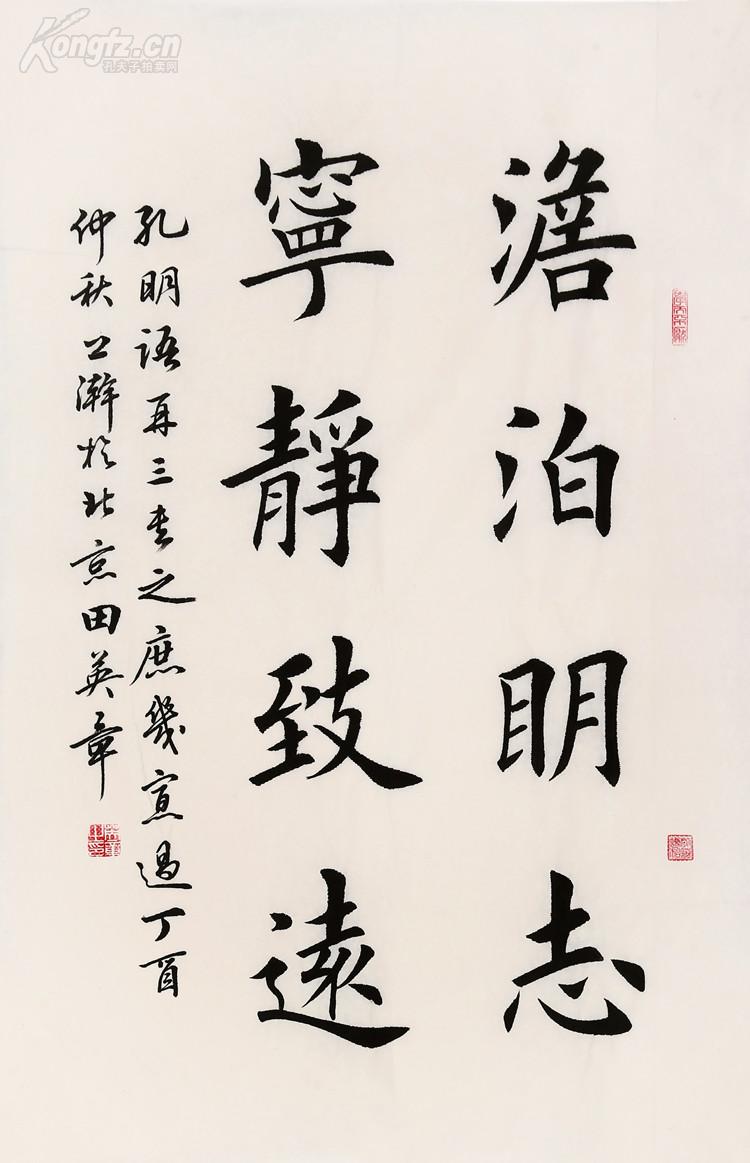 澹泊明志
寧靜致遠
孔明語再三書之庶幾寡過丁酉
仲秋上澣於北京田英章
Kongfz.cn
孔夫子拍卖网